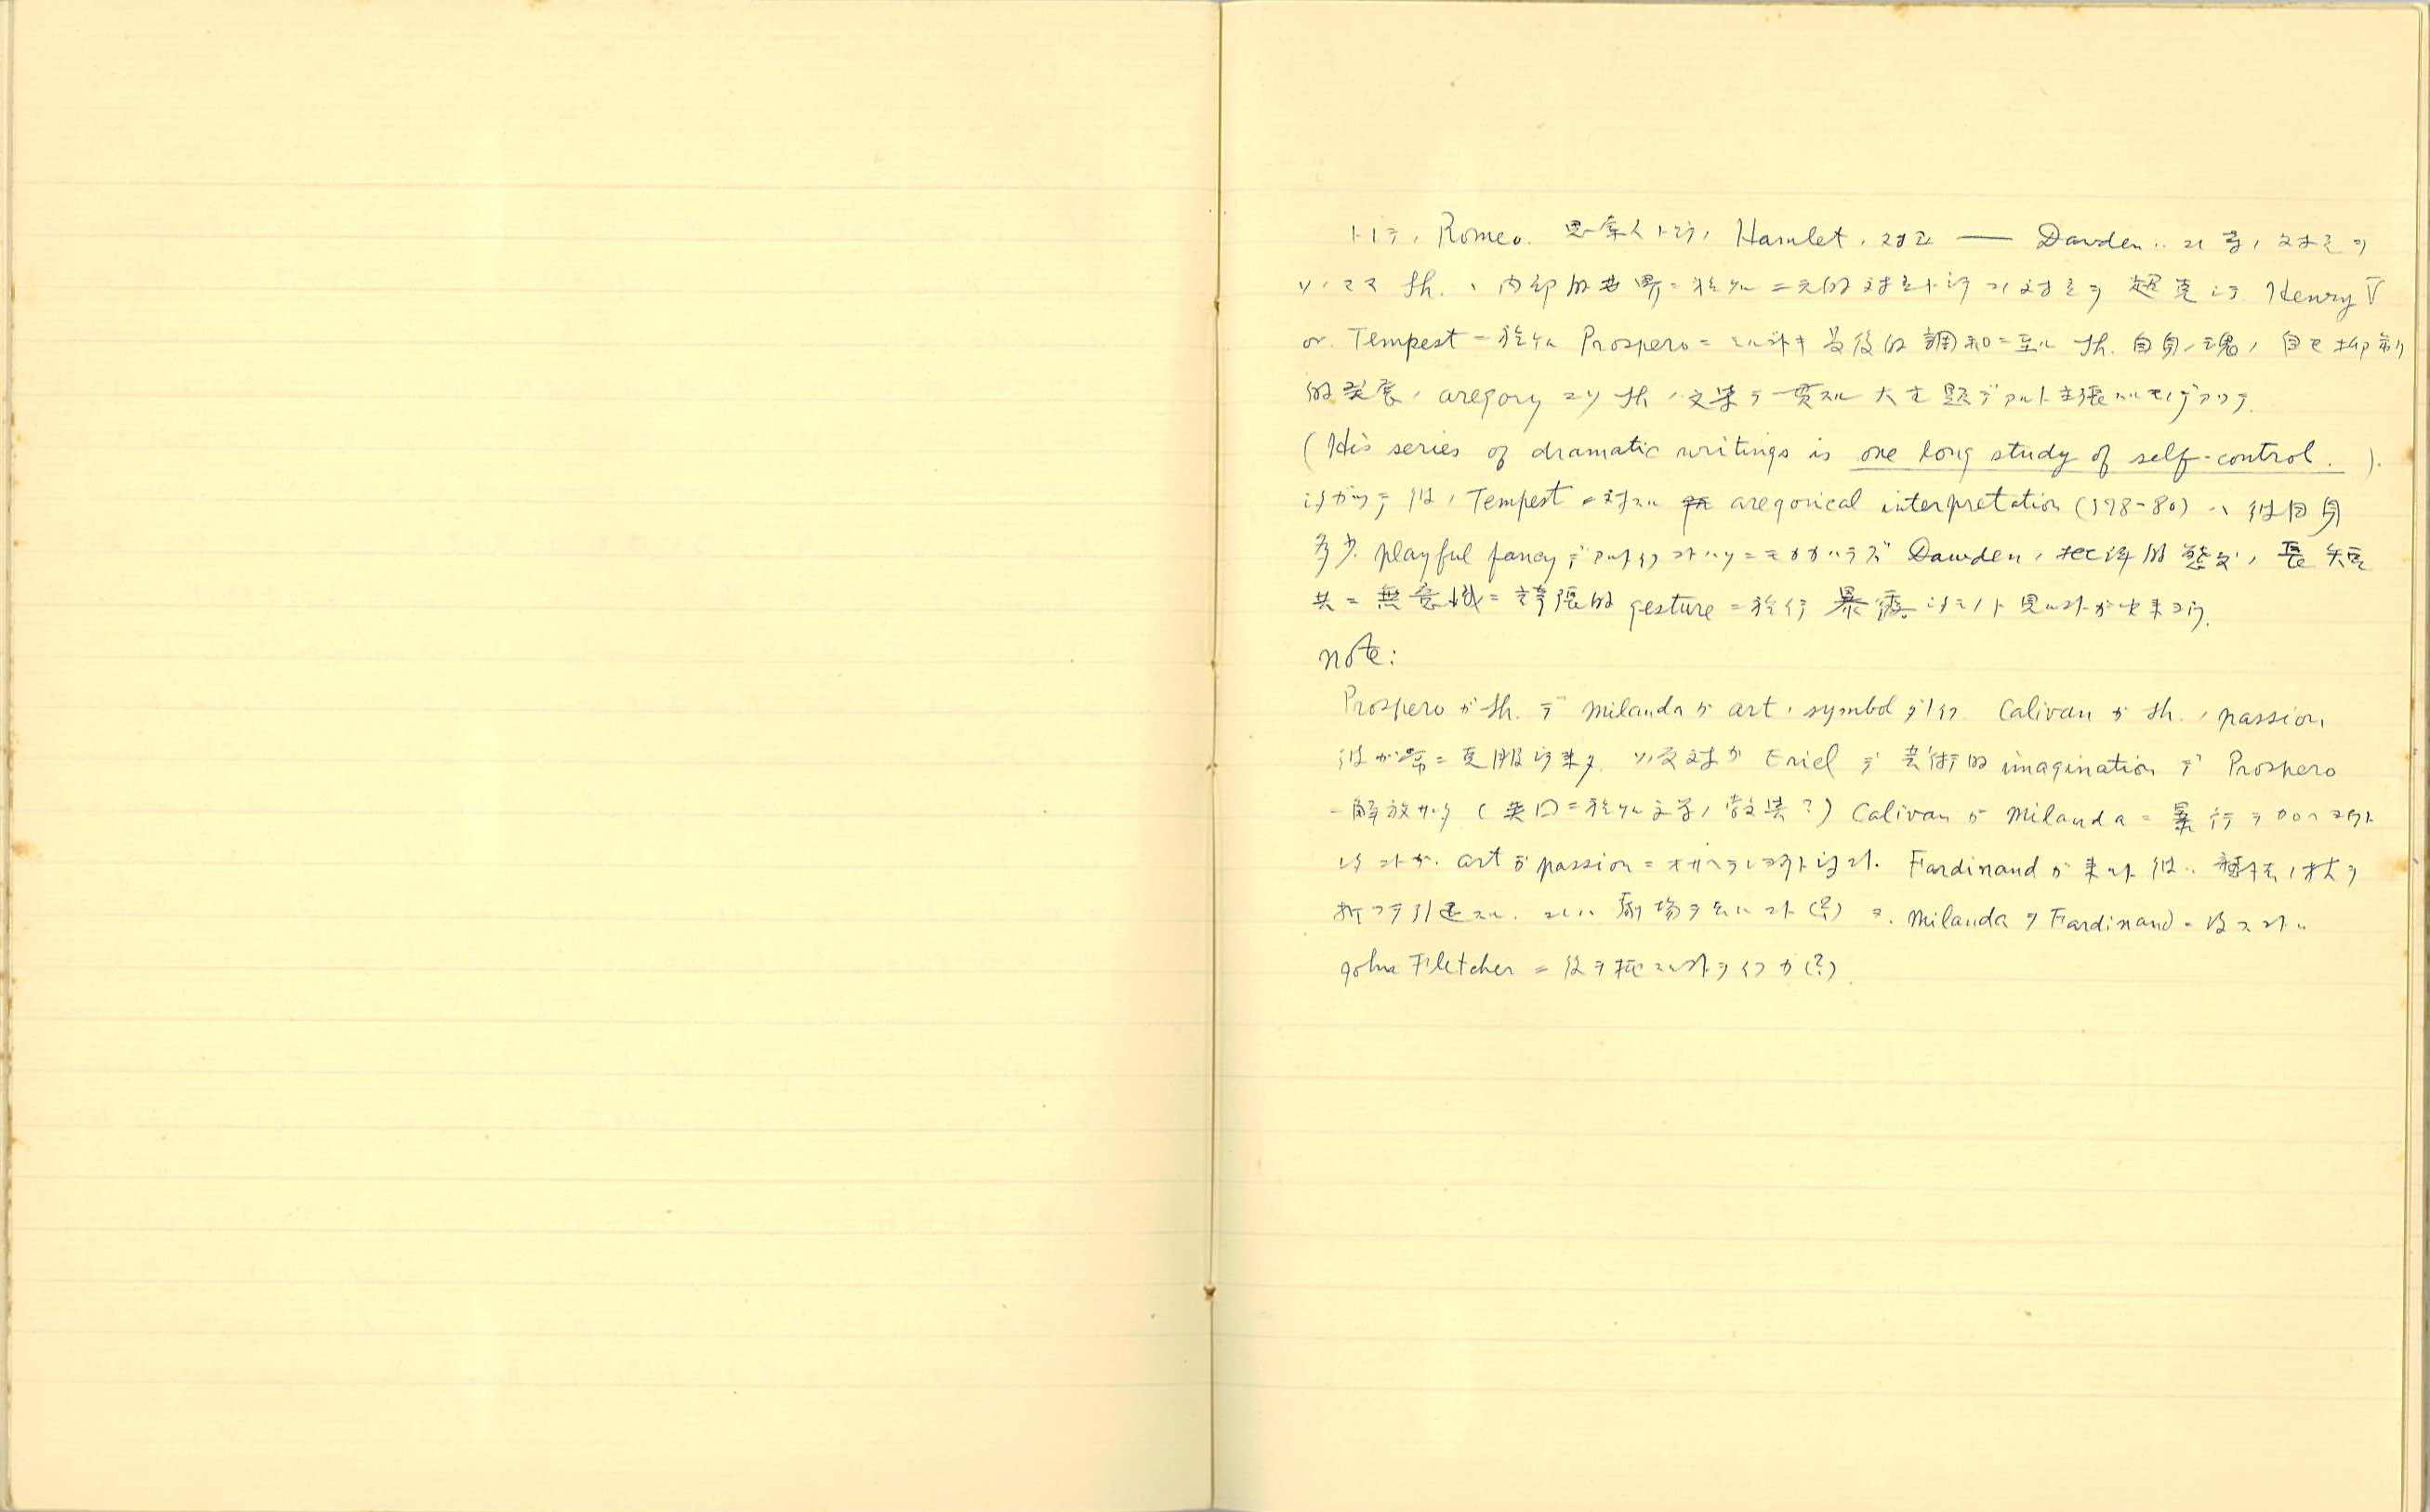 トシテノ Romeo. 思索人トシテノ Hamlet ノ対立 — Dawden ハコレ等ノ対立ヲ
ソノママ Sh. ノ内部的世界ニ於ケル二元的対立トシテコノ対立ヲ超克シテ Henry V
or Tempest ニ於ケル Prospero ニミルゴトキ最後的調和ニ至ル Sh. 自身ノ魂ノ自己抑制
的発展ノ aregory コソ Sh ノ文学ヲ一貫スル大主題デアルト主張スルモノデアツテ
(His series of dramatic writings is one long study of self-control. ).
シカモ彼ノ Tempest ニ対スル aregorical interpretation (378-80) ハ彼自身
多少 playful fancy デアルトイツテハヰルニモカカハラズ Dawden ノ批評的態度ノ長短
共ニ無意識ニ誇張的 gesture ニ於イテ暴露シタモノト見ルコトガ出来ヨウ.
note:
Prospero ガ Sh. デ Milanda ガ art ノ symbol ダトイフ. Calivan ガ Sh. ノ passion
彼ガ常ニ克服シテ来タ. ソノ反対ガ Eriel デ芸術的 imagination デ Prospero
解放サレタ (英国ニ於ケル文学ノ散文?) Calivan ガ Milanda ニ暴行ヲ加ヘヨウト
シタコトガ. art ガ passion ニオサヘラレヨウトシタコト. Fardinand ガ来ルト彼ハ魔法ノ杖ヲ
折ツテ引退スル. コレハ劇場ヲ去ルコト(?) . Milanda ヲ Fardinand ニ
John Fletcher ニ後ヲ托スルコトヲイフカ(?).